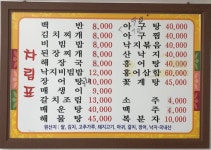 차림표
백반 8,000
김치찌개 8,000
비빔밥 8,000
된장찌개 8,000
해장국 8,000
낙지비빔밥 12,000
돌게탕 12,000
매생이 8,000
갈치조림 13,000
매운탕 40,000
해물탕 45,000
아구탕 40,000
아구찜 40,000
낙지볶음 40,000
산낙지
홍어 40,000
홍어삼합 60,000
꽃게탕 45,000
소주 4,000
맥주 4,000
복분자 10,000
원산지: 쌀, 김치, 고추가루, 돼지고기, 아구, 갈치, 홍어, 낙지-국내산